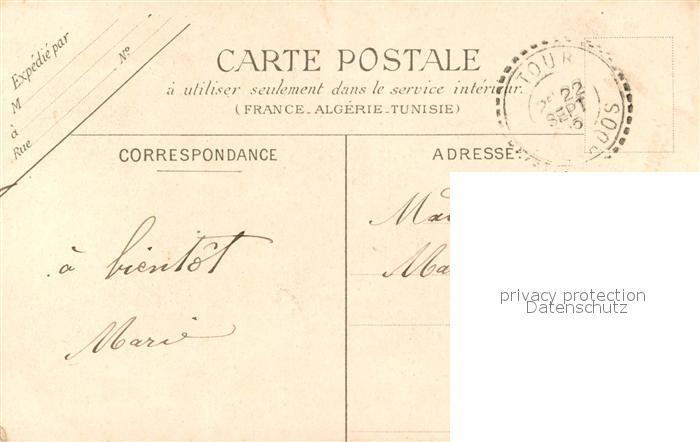 Expédié par
M N°
à
Rue
CARTE POSTALE
à utiliser seulement dans le service intérieur.
(FRANCE-ALGÉRIE-TUNISIE)
TOUR
22
SEPT
CORRESPONDANCE
ADRESSE
à bientôt
Marie
privacy protection
Datenschutz